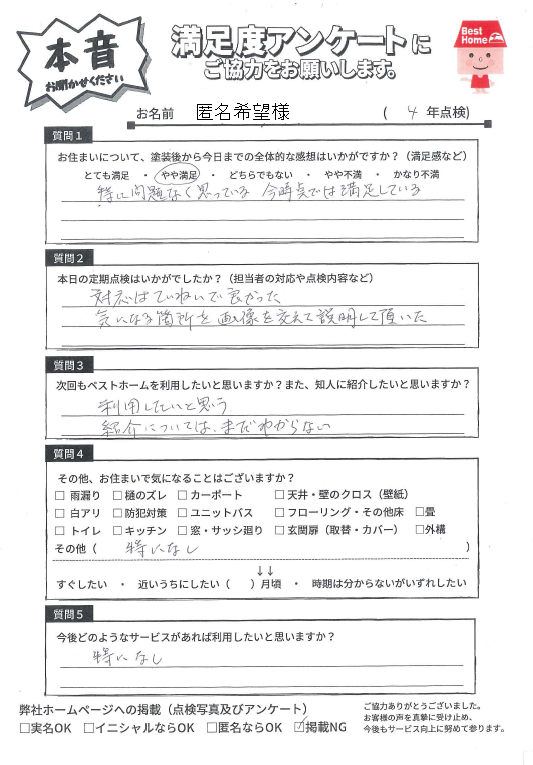 本音
お聞かせください
満足度アンケートに
ご協力をお願いします。
Best Home
お名前 匿名希望様 ( 4 年点検)
質問１
お住まいについて、塗装後から今日までの全体的な感想はいかがですか？（満足感など）
とても満足 ・ やや満足 ・ どちらでもない ・ やや不満 ・ かなり不満
特に問題なく思っている 今時点では満足している
質問２
本日の定期点検はいかがでしたか？（担当者の対応や点検内容など）
対応はていねいで良かった
気になる箇所を画像を交えて説明して頂いた
質問３
次回もベストホームを利用したいと思いますか？また、知人に紹介したいと思いますか？
利用したいと思う
紹介については、まだわからない
質問４
その他、お住まいで気になることはございますか？
□ 雨漏り □樋のズレ □ カーポート □ 天井・壁のクロス（壁紙）
□ 白アリ □防犯対策 □ ユニットバス □ フローリング・その他床 □畳
□ トイレ □キッチン □ 窓・サッシ廻り □ 玄関扉（取替・カバー） □外構
その他（ 特になし ）
↓↓
すぐしたい ・ 近いうちにしたい（ ）月頃 ・ 時期は分からないがいずれしたい
質問５
今後どのようなサービスがあれば利用したいと思いますか？
特になし
弊社ホームページへの掲載（点検写真及びアンケート）
□実名OK □イニシャルならOK □匿名ならOK ☑掲載NG
ご協力ありがとうございました。
お客様の声を真摯に受け止め、
今後もサービス向上に努めて参ります。